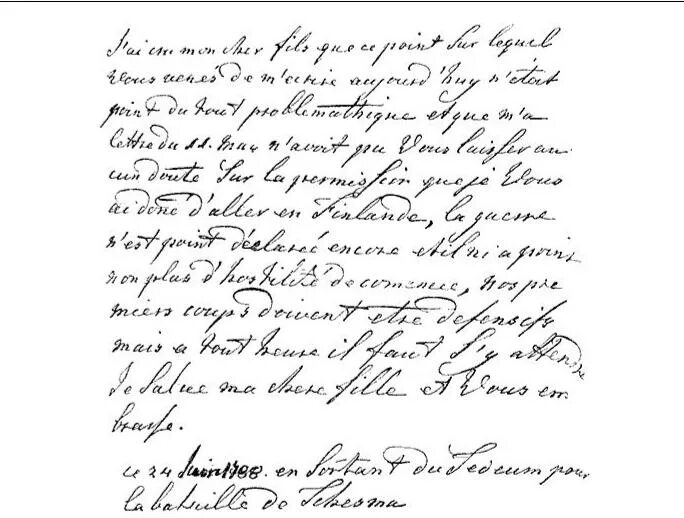 J'ai cru mon cher fils que ce point sur lequel
vous venés de m'ecrire aujourd'huy n'étoit
point du tout problemathique et que m'a
lettre du 11. may n'avoit pu vous laisser au
cun doute sur la permission que je vous
ai doné d'aller en Finlande, la guerre
n'est point déclareé encore et il ni a point
non plus d'hostilité de comencé, nos pre
miers coups doivent etre defensifs
mais a tout heure il faut s'y attendre
Je salue ma chere fille et vous em
brasse.
ce 24 Juin 1788. en sortant du Tedeum pour
la bataille de Tchesma